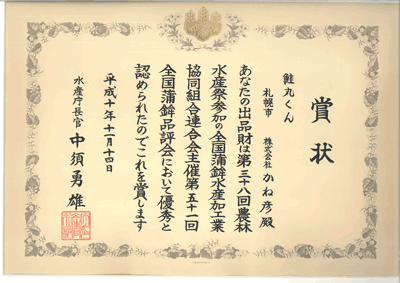 賞状
鮭丸くん
札幌市 株式会社 かね彦殿
あなたの出品財は第三十八回農林
水産祭参加の全国蒲鉾水産加工業
協同組合連合会主催第五十一回
全国蒲鉾品評会において優秀と
認められたのでこれを賞します
平成十年十一月十四日
水産庁長官 中須勇雄